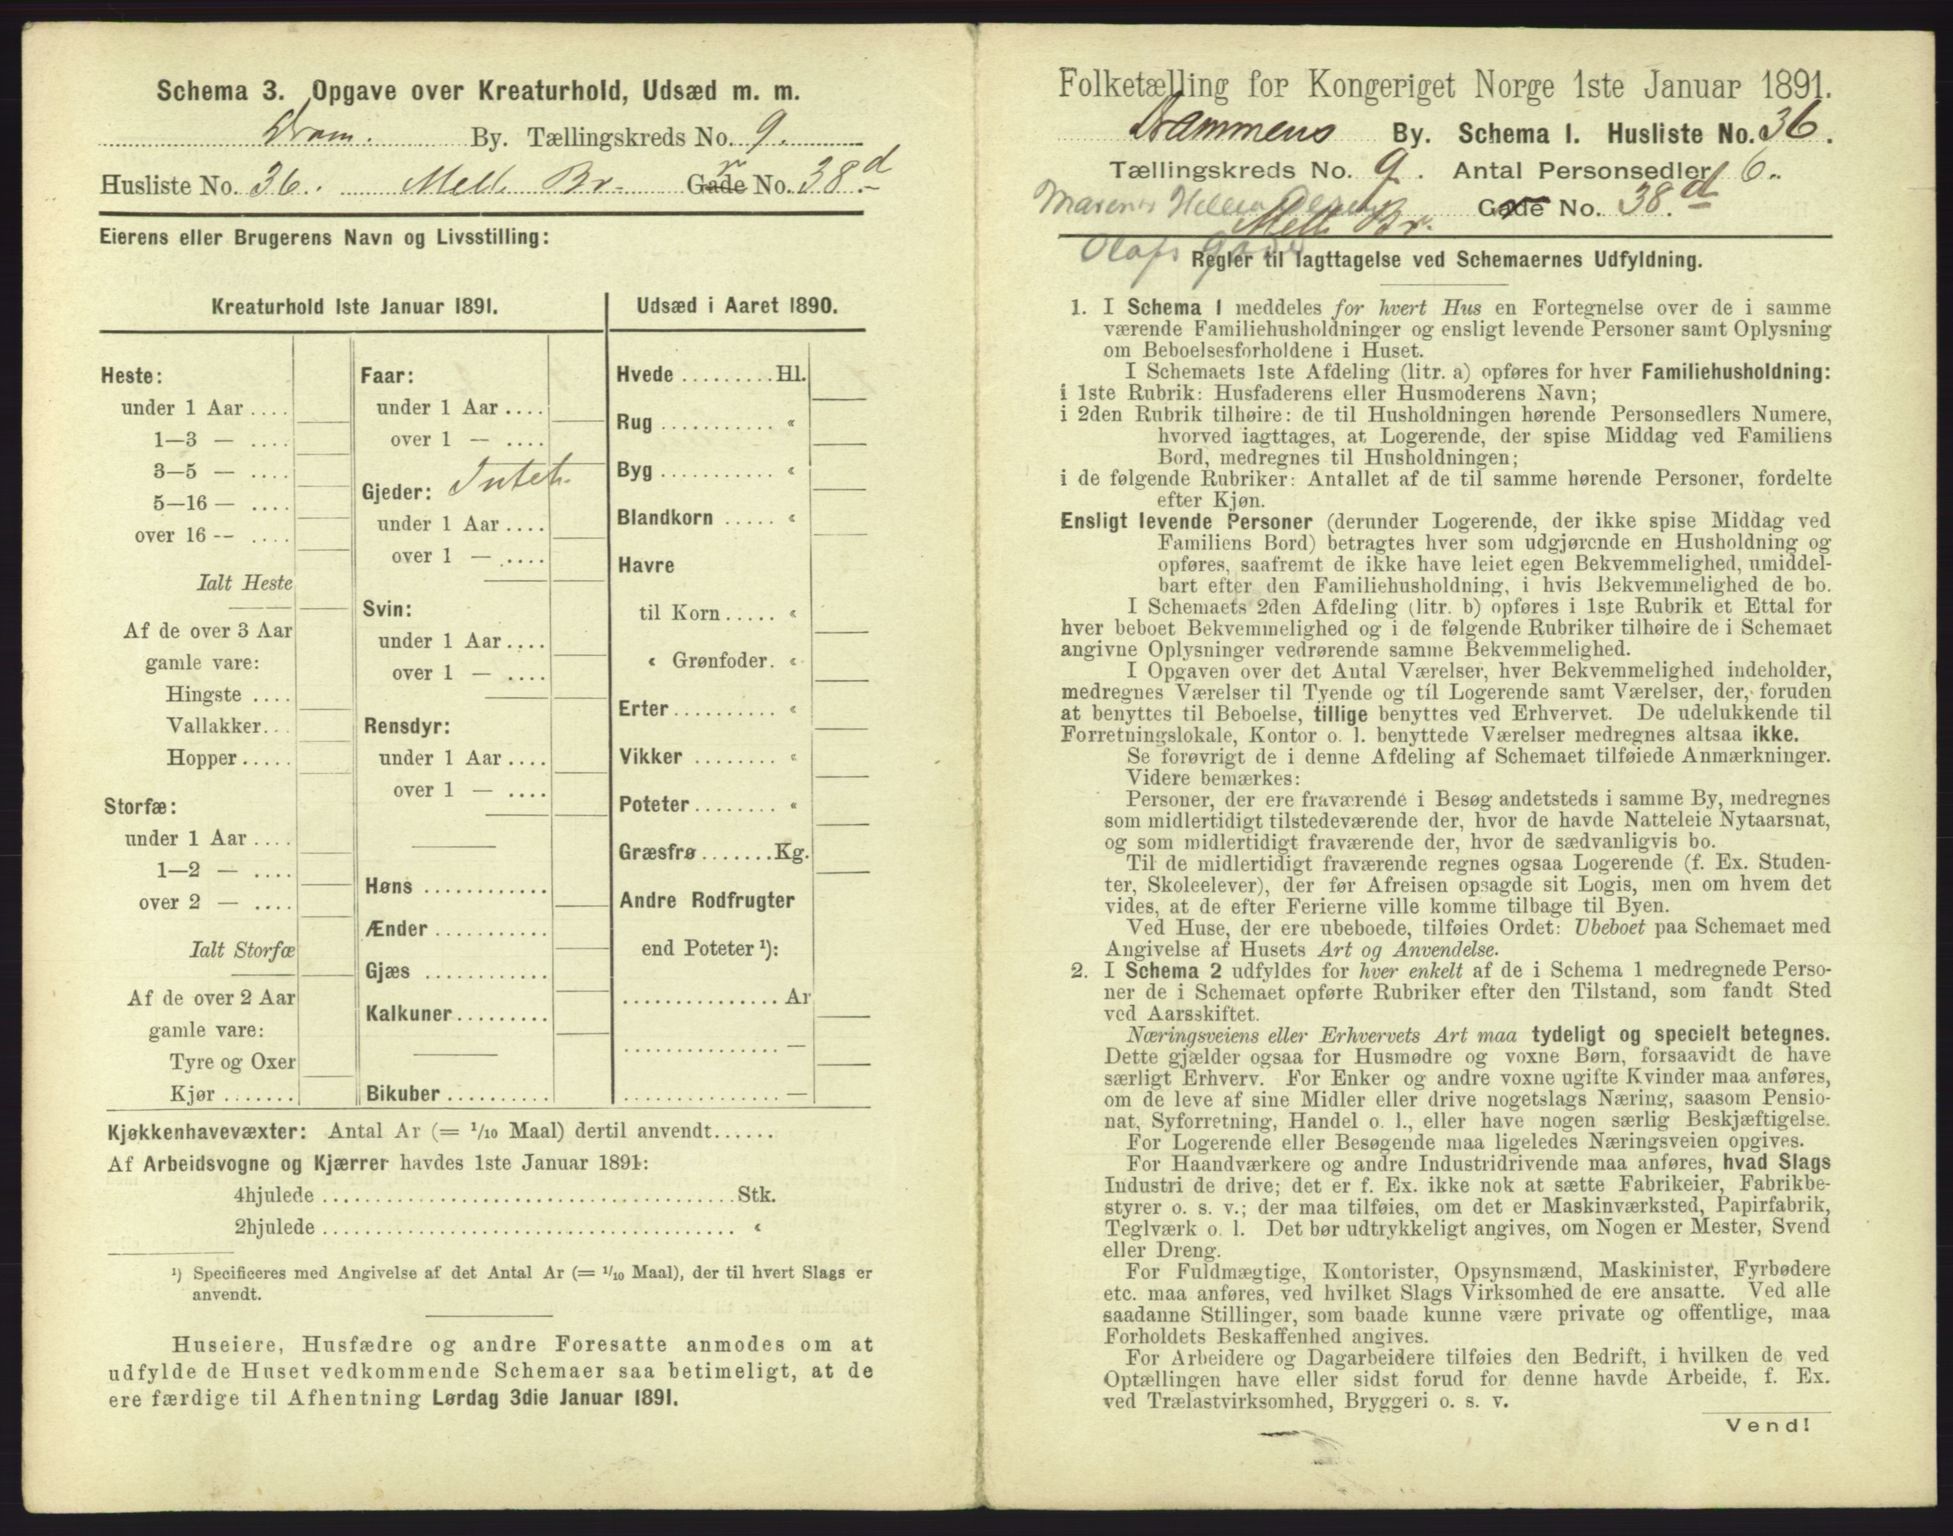 Schema 3. Opgave over Kreaturhold, Udsæd m. m.
Dram. By. Tællingskreds No. 9.
Husliste No. 36. Mell. Br. Gade No. 38 d
Eierens eller Brugerens Navn og Livsstilling:
Kreaturhold 1ste Januar 1891.
Heste:
under 1 Aar ....
1—3 — ....
3—5 — ....
5—16 — ....
over 16 — ....
Ialt Heste
Af de over 3 Aar
gamle vare:
Hingste ....
Vallakker...
Hopper.....
Storfæ:
under 1 Aar ....
1—2 — ....
over 2 — ....
Ialt Storfæ
Af de over 2 Aar
gamle vare:
Tyre og Oxer
Kjør .......
Faar:
under 1 Aar ....
over 1 — ....
Gjeder: Intet.
under 1 Aar ....
over 1 — ....
Svin:
under 1 Aar ....
over 1 — ....
Rensdyr:
under 1 Aar ....
over 1 — ....
Høns ............
Ænder ...........
Gjæs ............
Kalkuner.........
Bikuber ..........
Udsæd i Aaret 1890.
Hvede ......... Hl.
Rug ........... «
Byg ........... «
Blandkorn ..... «
Havre
til Korn ..... «
« Grønfoder. «
Erter.......... «
Vikker ........ «
Poteter........ «
Græsfrø .......Kg.
Andre Rodfrugter
end Poteter ¹):
............... Ar
............... —
............... —
Kjøkkenhavevæxter: Antal Ar (= 1/10 Maal) dertil anvendt......
Af Arbeidsvogne og Kjærrer havdes 1ste Januar 1891:
4hjulede .................................... Stk.
2hjulede .................................... «
¹) Specificeres med Angivelse af det Antal Ar (= 1/10 Maal), der til hvert Slags er
anvendt.
Huseiere, Husfædre og andre Foresatte anmodes om at
udfylde de Huset vedkommende Schemaer saa betimeligt, at de
ere færdige til Afhentning Lørdag 3die Januar 1891.
Folketælling for Kongeriget Norge 1ste Januar 1891.
Drammens By. Schema I. Husliste No. 36.
Tællingskreds No. 9. Antal Personsedler 6.
Mell. Br. Gade No. 38. d
Olafs
Regler til Iagttagelse ved Schemaernes Udfyldning.
1. I Schema I meddeles for hvert Hus en Fortegnelse over de i samme
værende Familiehusholdninger og ensligt levende Personer samt Oplysning
om Beboelsesforholdene i Huset.
I Schemaets 1ste Afdeling (litr. a) opføres for hver Familiehusholdning:
i 1ste Rubrik: Husfaderens eller Husmoderens Navn;
i 2den Rubrik tilhøire: de til Husholdningen hørende Personsedlers Numere,
hvorved iagttages, at Logerende, der spise Middag ved Familiens
Bord, medregnes til Husholdningen;
i de følgende Rubriker: Antallet af de til samme hørende Personer, fordelte
efter Kjøn.
Ensligt levende Personer (derunder Logerende, der ikke spise Middag ved
Familiens Bord) betragtes hver som udgjørende en Husholdning og
opføres, saafremt de ikke have leiet egen Bekvemmelighed, umiddel-
bart efter den Familiehusholdning, i hvis Bekvemmelighed de bo.
I Schemaets 2den Afdeling (litr. b) opføres i 1ste Rubrik et Ettal for
hver beboet Bekvemmelighed og i de følgende Rubriker tilhøire de i Schemaet
angivne Oplysninger vedrørende samme Bekvemmelighed.
I Opgaven over det Antal Værelser, hver Bekvemmelighed indeholder,
medregnes Værelser til Tyende og til Logerende samt Værelser, der, foruden
at benyttes til Beboelse, tillige benyttes ved Erhvervet. De udelukkende til
Forretningslokale, Kontor o. l. benyttede Værelser medregnes altsaa ikke.
Se forøvrigt de i denne Afdeling af Schemaet tilføiede Anmærkninger.
Videre bemærkes:
Personer, der ere fraværende i Besøg andetsteds i samme By, medregnes
som midlertidigt tilstedeværende der, hvor de havde Natteleie Nytaarsnat,
og som midlertidigt fraværende der, hvor de sædvanligvis bo.
Til de midlertidigt fraværende regnes ogsaa Logerende (f. Ex. Studen-
ter, Skoleelever), der før Afreisen opsagde sit Logis, men om hvem det
vides, at de efter Ferierne ville komme tilbage til Byen.
Ved Huse, der ere ubeboede, tilføies Ordet: Ubeboet paa Schemaet med
Angivelse af Husets Art og Anvendelse.
2. I Schema 2 udfyldes for hver enkelt af de i Schema 1 medregnede Perso-
ner de i Schemaet opførte Rubriker efter den Tilstand, som fandt Sted
ved Aarsskiftet.
Næringsveiens eller Erhvervets Art maa tydeligt og specielt betegnes.
Dette gjælder ogsaa for Husmødre og voxne Børn, forsaavidt de have
særligt Erhverv. For Enker og andre voxne ugifte Kvinder maa anføres,
om de leve af sine Midler eller drive nogetslags Næring, saasom Pensio-
nat, Syforretning, Handel o. l., eller have nogen særlig Beskjæftigelse.
For Logerende eller Besøgende maa ligeledes Næringsveien opgives.
For Haandværkere og andre Industridrivende maa anføres, hvad Slags
Industri de drive; det er f. Ex. ikke nok at sætte Fabrikeier, Fabrikbe-
styrer o. s. v.; der maa tilføies, om det er Maskinværksted, Papirfabrik,
Teglværk o. l. Det bør udtrykkeligt angives, om Nogen er Mester, Svend
eller Dreng.
For Fuldmægtige, Kontorister, Opsynsmænd, Maskinister, Fyrbødere
etc. maa anføres, ved hvilket Slags Virksomhed de ere ansatte. Ved alle
saadanne Stillinger, som baade kunne være private og offentlige, maa
Forholdets Beskaffenhed angives.
For Arbeidere og Dagarbeidere tilføies den Bedrift, i hvilken de ved
Optællingen have eller sidst forud for denne havde Arbeide, f. Ex.
ved Trælastvirksomhed, Bryggeri o. s. v.
Vend!